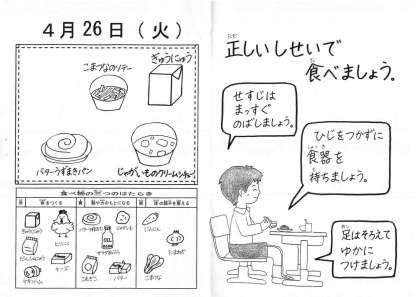 4月26日(火)
こまつなのソテー
ぎゅうにゅう
バターうずまきパン
じゃがいものクリームシチュー
食べ物の三つのはたらき
ぎゅうにゅう
チーズ
OIL
バター
こまつな
たまねぎ
正しいしせいで
食べましょう。
せすじは
まっすぐ
のばしましょう。
ひじをつかずに
食器を
持ちましょう。
足はそろえて
ゆかに
つけましょう。